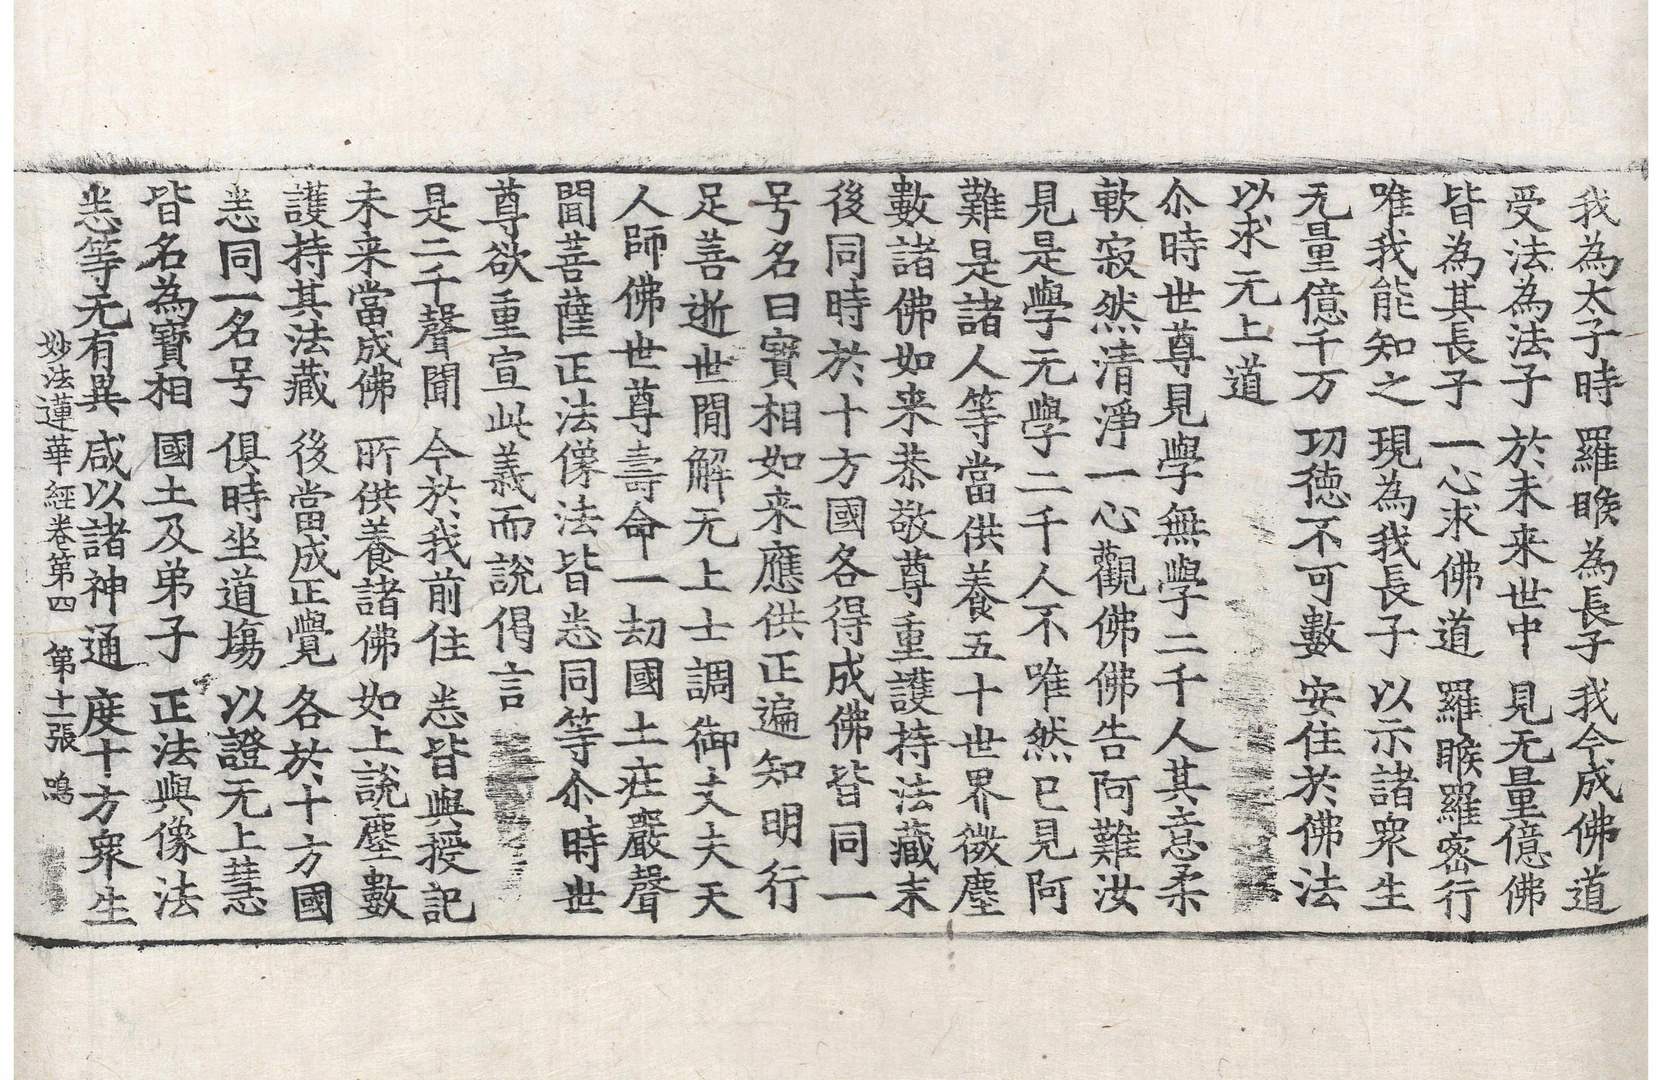 我為太子時 羅睺為長子 我今成佛道
受法為法子 於未来世中 見无量億佛
皆為其長子 一心求佛道 羅睺羅密行
唯我能知之 現為我長子 以示諸衆生
无量億千万 功徳不可數 安住於佛法
以求无上道
尒時世尊見學無學二千人其意柔
軟寂然清淨一心觀佛佛告阿難汝
見是學无學二千人不唯然已見阿
難是諸人等當供養五十世界微塵
數諸佛如来恭敬尊重護持法藏末
後同時於十方國各得成佛皆同一
号名曰寳相如来應供正遍知明行
足善逝世間解无上士調御丈夫天
人師佛世尊壽命一劫國土庄嚴聲
聞菩薩正法像法皆悉同等尒時世
尊欲重宣此義而說偈言
是二千聲聞 今於我前住 悉皆與授記
未来當成佛 所供養諸佛 如上說塵數
護持其法藏 後當成正覺 各於十方國
悉同一名号 俱時坐道塲 以證无上慧
皆名為寳相 國土及弟子 正法與像法
悉等无有異 咸以諸神通 度十方衆生
妙法蓮華經卷第四 第十一張 鳴